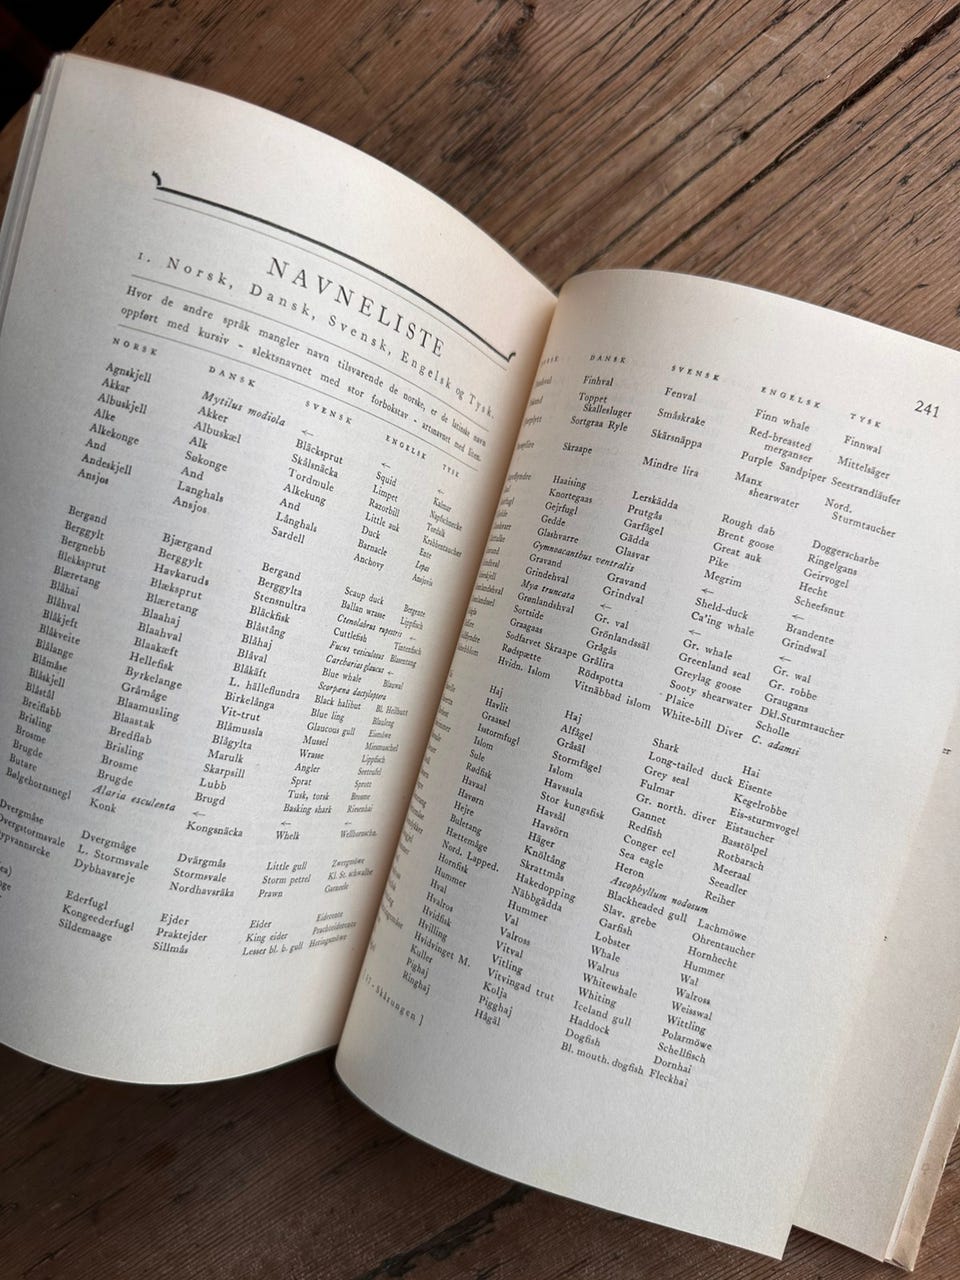 NAVNELISTE
1. Norsk, Dansk, Svensk, Engelsk og Tysk.
Hvor de andre språk mangler navn tilsvarende de norske, er de latinske navn
oppført med kursiv - slektsnavnet med stor forbokstav - artsnavnet med liten.
NORSK DANSK SVENSK ENGELSK TYSK
Agnskjell Mytilus modiola ← ← ←
Akkar Akker Bläcksprut Squid Kalmar
Albuskjell Albuskæl Skålsnäcka Limpet Napfschnecke
Alke Alk Tordmule Razorbill Tordalk
Alkekonge Søkonge Alkekung Little auk Krabbentaucher
And And And Duck Ente
Andeskjell Langhals Långhals Barnacle Lepas
Ansjos Ansjos Sardell Anchovy Anjovis
Bergand Bjærgand Bergand Scaup duck Bergente
Berggylt Berggylt Berggylta Ballan wrasse Lippfisch
Bergnebb Havkaruds Stensnultra Ctenolabrus rupestris ←
Blekksprut Blæksprut Bläckfisk Cuttlefish Tintenfisch
Blæretang Blæretang Blåstång Fucus vesiculosus Blasentang
Blåhai Blaahaj Blåhaj Carcharias glaucus ←
Blåhval Blaahval Blåval Blue whale Blauval
Blåkjeft Blaakæft Blåkäft Scorpæna dactyloptera
Blåkveite Hellefisk L. hälleflundra Black halibut Bl. Heilbutt
Blålange Byrkelange Birkelånga Blue ling Blauleng
Blåmåse Gråmåge Vit-trut Glaucous gull Eismöwe
Blåskjell Blaamusling Blåmussla Mussel Miesmuschel
Blåstål Blaastak Blågylta Wrasse Lippfisch
Breiflabb Bredflab Marulk Angler Seeteufel
Brisling Brisling Skarpsill Sprat Sprott
Brosme Brosme Lubb Tusk, torsk Brosme
Brugde Brugde Brugd Basking shark Riesenhai
Butare Alaria esculenta ← ← ←
Bølgehornsnegl Konk Kongsnäcka Whelk Wellhornschn.
Dvergmåse Dvergmåge Dvärgmås Little gull Zwergmöwe
Dvergstormsvale L. Stormsvale Stormsvale Storm petrel Kl. St. schwalbe
Dybhavsreje Nordhavsräka Prawn Garneele
Ederfugl Ejder Eider Eiderente
Kongeederfugl Praktejder King eider Prachteiderente
Sildemaage Sillmås Lesser bl. b. gull Heringsmöwe
241
DANSK SVENSK ENGELSK TYSK
Finhval Fenval Finn whale Finnwal
Toppet Skallesluger Småskrake Red-breasted merganser Mittelsäger
Sortgraa Ryle Skärsnäppa Purple Sandpiper Seestrandläufer
Skraape Mindre lira Manx shearwater Nord. Sturmtaucher
Haaising Lerskädda Rough dab Doggerscharbe
Knortegaas Prutgås Brent goose Ringelgans
Gejrfugl Garfågel Great auk Geirvogel
Gedde Gädda Pike Hecht
Glashvarre Glasvar Megrim Scheefsnut
Gymnoacanthus ventralis ← ←
Gravand Gravand Sheld-duck Brandente
Grindehval Grindval Ca'ing whale Grindwal
Mya truncata ← ← ←
Grønlandshval Gr. val Gr. whale Gr. wal
Sortside Grönlandssäl Greenland seal Gr. robbe
Graagaas Grågås Greylag goose Graugans
Sodfarvet Skraape Grålira Sooty shearwater Dkl.Sturmtaucher
Rødspætte Rödspotta Plaice Scholle
Hvidn. Islom Vitnäbbad islom White-bill Diver C. adamsi
Haj Haj Shark Hai
Havlit Alfågel Long-tailed duck Eisente
Graasæl Gråsäl Grey seal Kegelrobbe
Isstormfugl Stormfågel Fulmar Eis-sturmvogel
Islom Islom Gr. north. diver Eistaucher
Sule Havssula Gannet Basstölpel
Rødfisk Stor kungsfisk Redfish Rotbarsch
Havaal Havsål Conger eel Meeraal
Havørn Havsörn Sea eagle Seeadler
Hejre Häger Heron Reiher
Buletang Knöltång Ascophyllum nodosum
Hættemåge Skrattmås Blackheaded gull Lachmöwe
Nord. Lapped. Hakedopping Slav. grebe Ohrentaucher
Hornfisk Näbbgädda Garfish Hornhecht
Hummer Hummer Lobster Hummer
Hval Val Whale Wal
Hvalros Valross Walrus Walross
Hvidfisk Vitval Whitewhale Weisswal
Hvilling Vitling Whiting Wittling
Hvidvinget M. Vitvingad trut Iceland gull Polarmöwe
Kuller Kolja Haddock Schellfisch
Pighaj Pigghaj Dogfish Dornhai
Ringhaj Hågäl Bl. mouth. dogfish Fleckhai
Skårungen ]